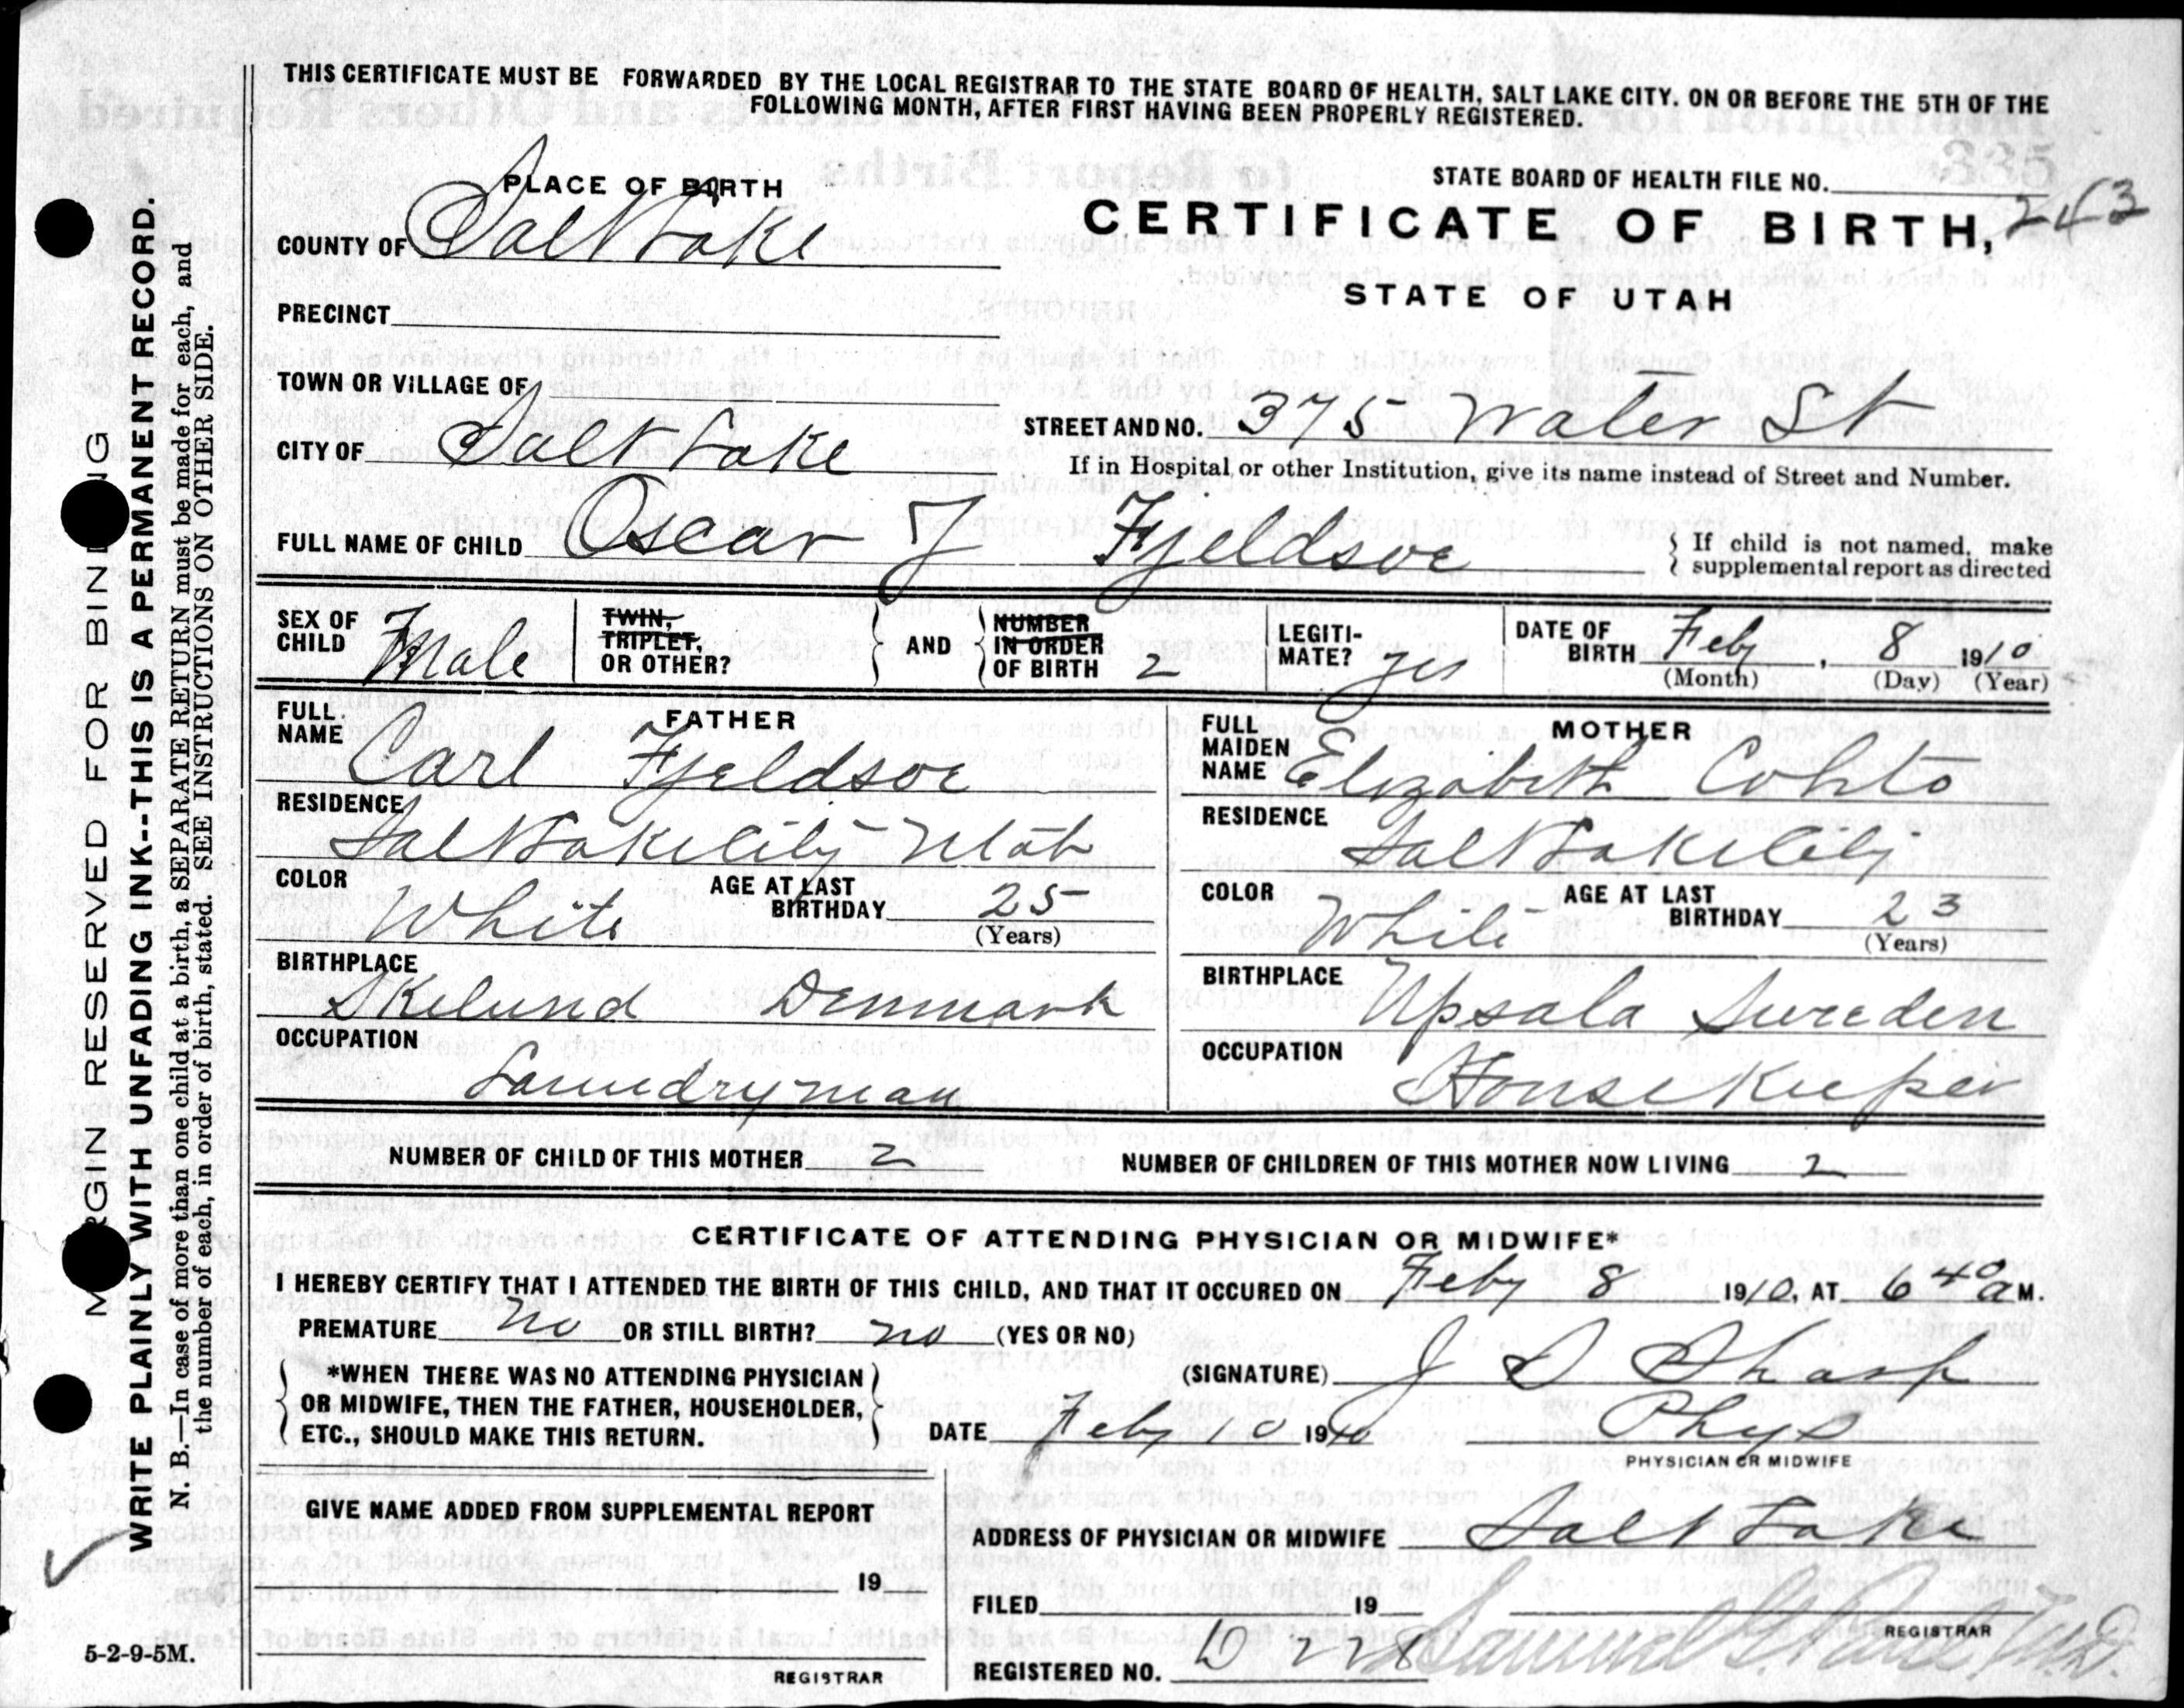 THIS CERTIFICATE MUST BE FORWARDED BY THE LOCAL REGISTRAR TO THE STATE BOARD OF HEALTH, SALT LAKE CITY. ON OR BEFORE THE 5TH OF THE
FOLLOWING MONTH, AFTER FIRST HAVING BEEN PROPERLY REGISTERED.
PLACE OF BIRTH
STATE BOARD OF HEALTH FILE NO.
243
COUNTY OF Salt Lake
CERTIFICATE OF BIRTH,
STATE OF UTAH
PRECINCT
TOWN OR VILLAGE OF
CITY OF Salt Lake
STREET AND NO. 375 Water St
If in Hospital or other Institution, give its name instead of Street and Number.
FULL NAME OF CHILD Oscar J Fjeldsoe
If child is not named, make
supplemental report as directed
SEX OF CHILD Male
TWIN, TRIPLET, OR OTHER?
AND
NUMBER IN ORDER OF BIRTH 2
LEGITI-MATE? yes
DATE OF BIRTH Feby, 8 1910
(Month) (Day) (Year)
FATHER
FULL NAME Carl Fjeldsoe
RESIDENCE
Salt Lake City Utah
COLOR White
AGE AT LAST BIRTHDAY 25
(Years)
BIRTHPLACE
Skelund Denmark
OCCUPATION
Laundryman
MOTHER
FULL MAIDEN NAME Elizabeth
RESIDENCE
Salt Lake City
COLOR White
AGE AT LAST BIRTHDAY 23
(Years)
BIRTHPLACE
Upsala Sweden
OCCUPATION
Housekeeper
NUMBER OF CHILD OF THIS MOTHER 2
NUMBER OF CHILDREN OF THIS MOTHER NOW LIVING 2
CERTIFICATE OF ATTENDING PHYSICIAN OR MIDWIFE*
I HEREBY CERTIFY THAT I ATTENDED THE BIRTH OF THIS CHILD, AND THAT IT OCCURED ON Feby 8 1910, AT 6 40 a M.
PREMATURE no OR STILL BIRTH? no (YES OR NO)
*WHEN THERE WAS NO ATTENDING PHYSICIAN
OR MIDWIFE, THEN THE FATHER, HOUSEHOLDER,
ETC., SHOULD MAKE THIS RETURN.
(SIGNATURE) J D Sharp
DATE Feby 10 1910
Phys
PHYSICIAN OR MIDWIFE
GIVE NAME ADDED FROM SUPPLEMENTAL REPORT
19
REGISTRAR
ADDRESS OF PHYSICIAN OR MIDWIFE Salt Lake
FILED 19
REGISTRAR
REGISTERED NO. D 228
Samuel G. Paul M.D.
MARGIN RESERVED FOR BINDING
WRITE PLAINLY WITH UNFADING INK--THIS IS A PERMANENT RECORD.
N. B.—In case of more than one child at a birth, a SEPARATE RETURN must be made for each, and
the number of each, in order of birth, stated. SEE INSTRUCTIONS ON OTHER SIDE.
5-2-9-5M.